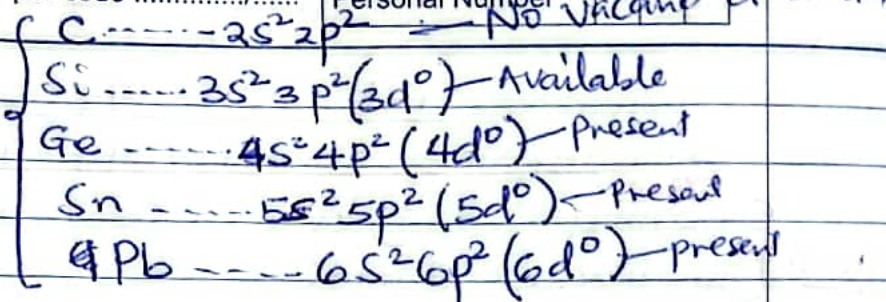 Personal Number
C ........ 2s² 2p² — No vacant
Si ...... 3s² 3p² (3d⁰) — Available
Ge ........ 4s² 4p² (4d⁰) — present
Sn ...... 5s² 5p² (5d⁰) — Present
Pb ...... 6s² 6p² (6d⁰) — present